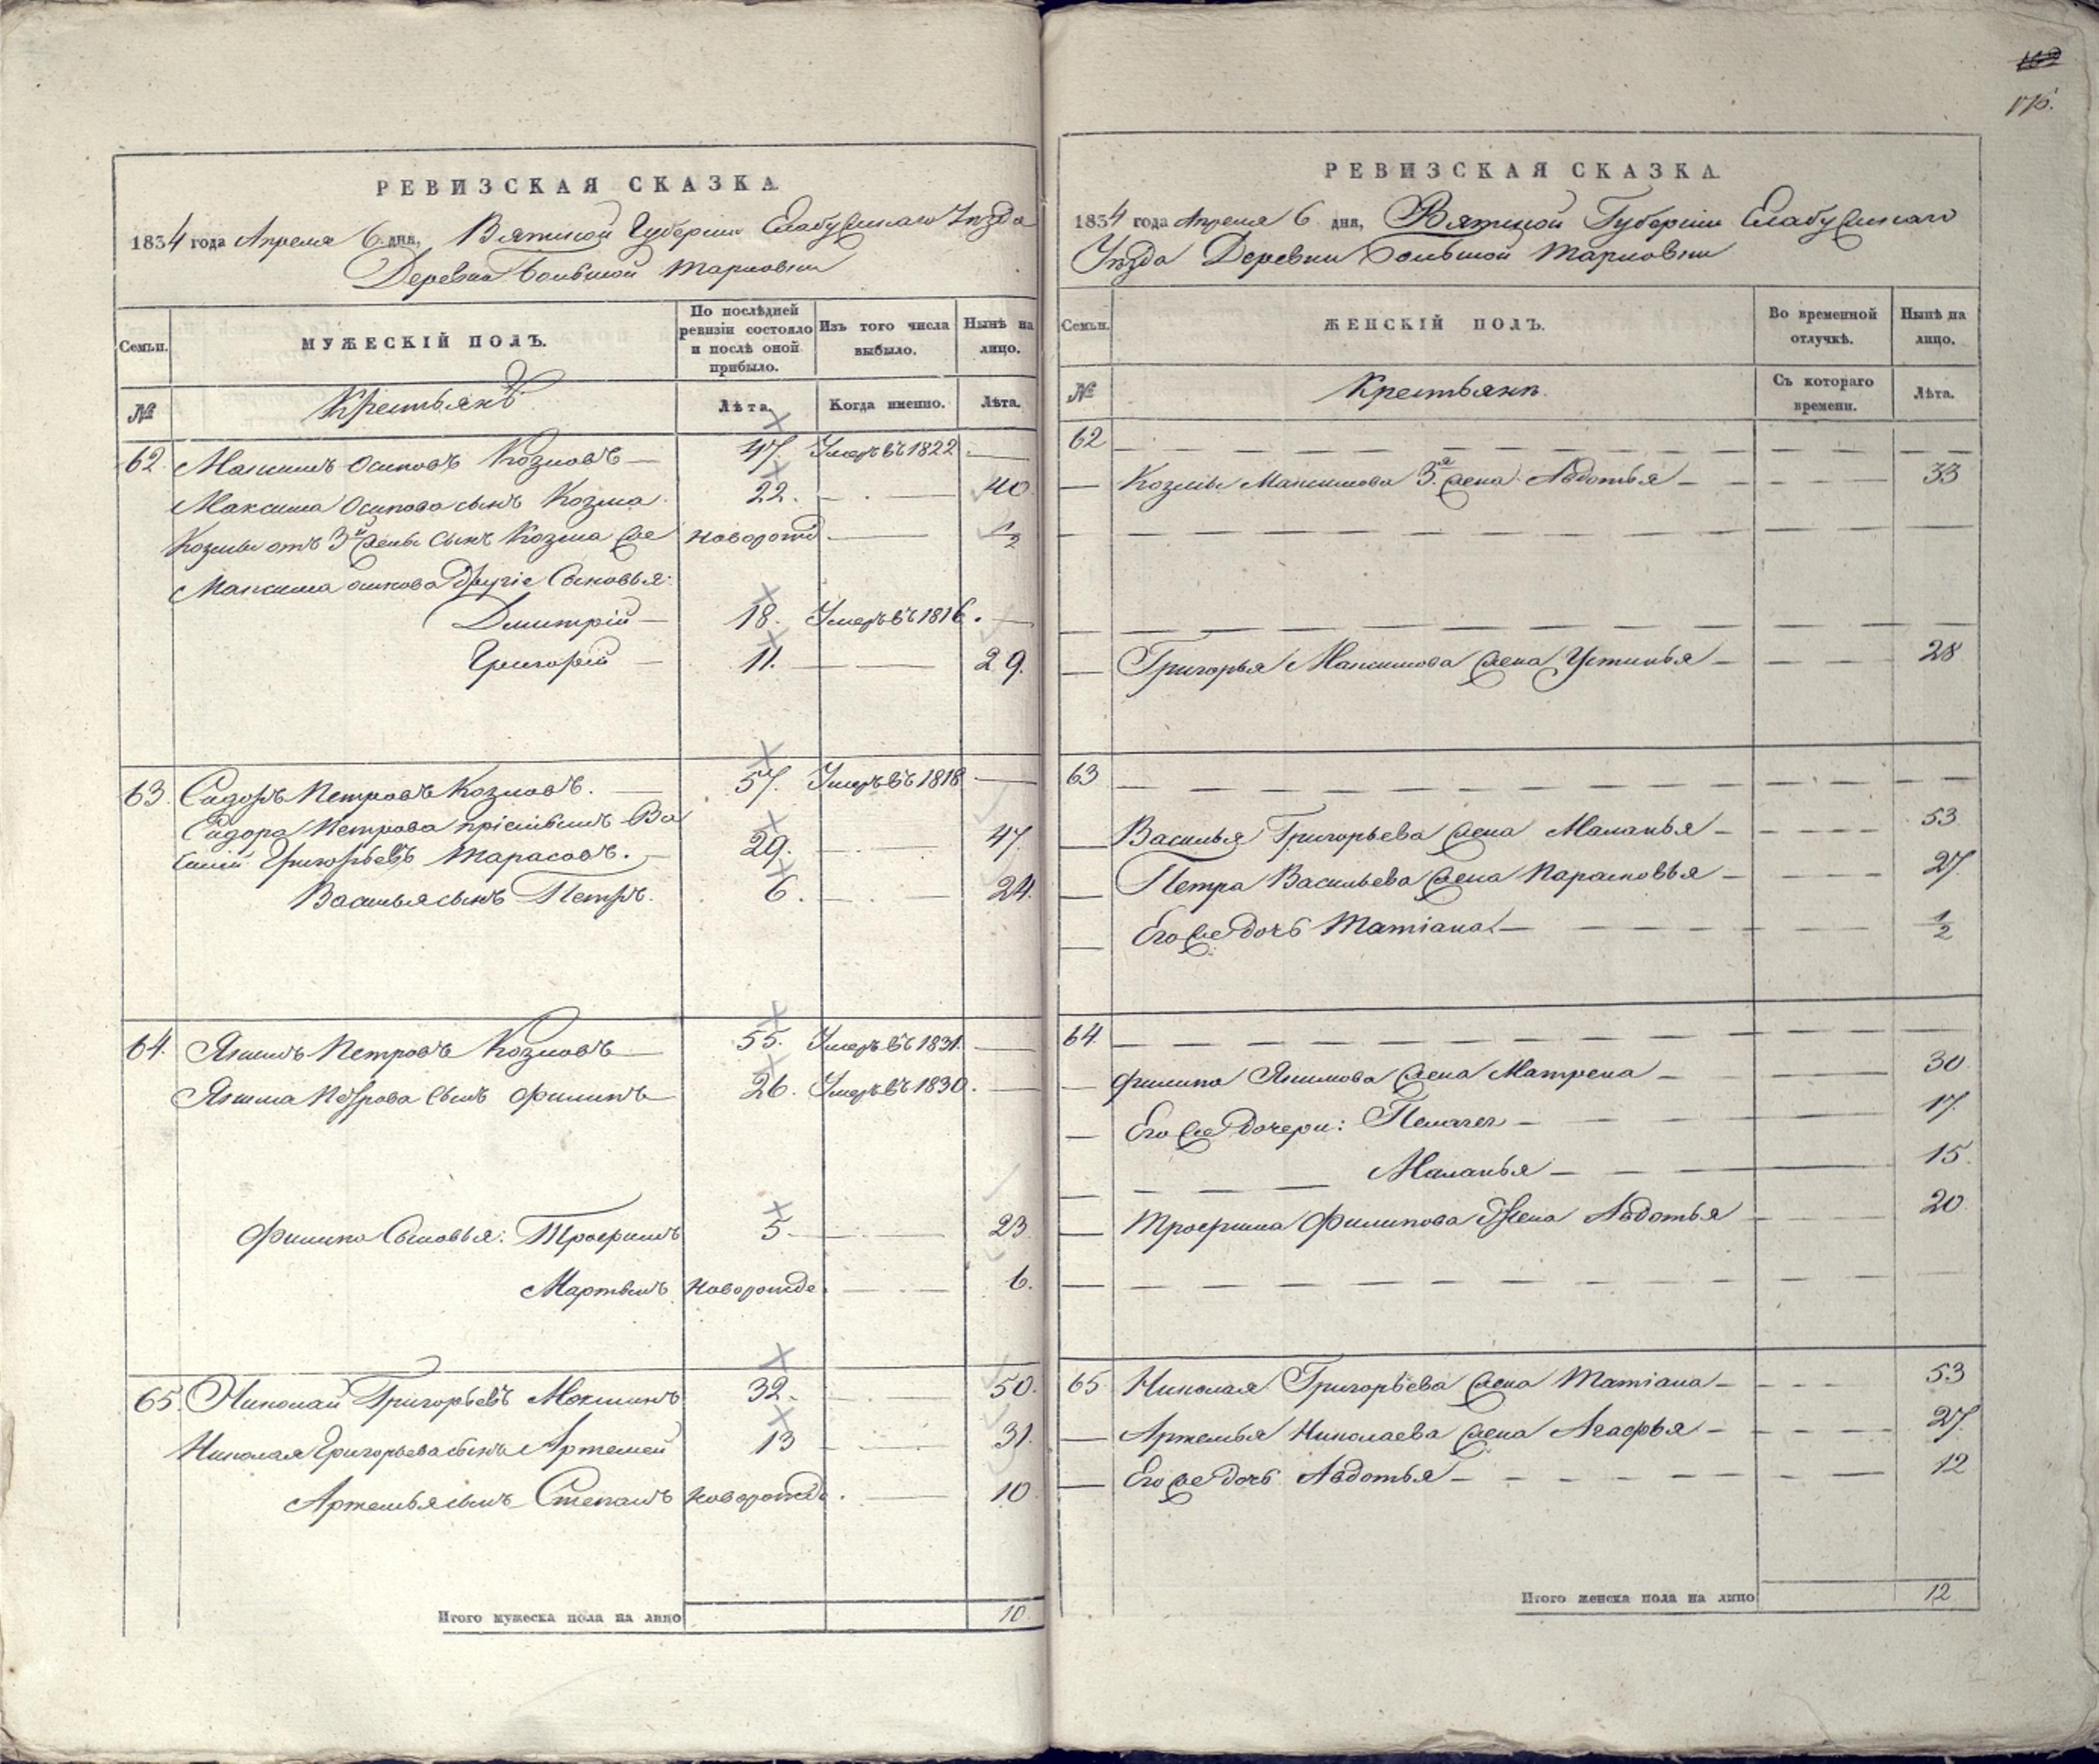 175.
РЕВИЗСКАЯ СКАЗКА
1834 года Апреля 6 дня, Вятской Губерніи Елабужскаго Уѣзда
Деревни Большой Тарловки
Семьи. МУЖЕСКІЙ ПОЛЪ. По послѣдней ревизіи состояло и послѣ оной прибыло. Изъ того числа выбыло. Нынѣ на лицо.
№ Крестьянъ Лѣта. Когда именно. Лѣта.
62. Максимъ Осиповъ Козловъ — 47. Умеръ въ 1822 —
Максима Осипова сынъ Козма 22. — 40.
Козмы отъ 3й жены сынъ Козма же новорожд — 1/2
Максима Осипова другіе сыновья:
Дмитрій — 18. Умеръ въ 1816. —
Григорій — 11. — 29.
63. Сидоръ Петровъ Козловъ. — 57. Умеръ въ 1818 —
Сидора Петрова пріемышъ Ва
силій Григорьевъ Тарасовъ. — 29. — 47
Василья сынъ Петръ. 6. — 24.
64. Якимъ Петровъ Козловъ — 55. Умеръ въ 1831. —
Якима Петрова сынъ Филипъ — 26. Умеръ въ 1830. —
Филипа сыновья: Трофимъ 5. — 23
Мартынъ новорожде — 6.
65. Николай Григорьевъ Мокшинъ 32. — 50.
Николая Григорьева сынъ Артемей 13 — 31.
Артемья сынъ Степанъ новорожде. — 10
Итого мужеска пола на лицо 10.
РЕВИЗСКАЯ СКАЗКА.
1834 года Апреля 6 дня, Вятской Губерніи Елабужскаго
Уѣзда Деревни Большой Тарловки
Семьи. ЖЕНСКІЙ ПОЛЪ. Во временной отлучкѣ. Нынѣ на лицо.
№ Крестьянъ. Съ котораго времени. Лѣта.
62 —
— Козмы Максимова 3я жена Авдотья — 33
—
—
— Григорья Максимова жена Устинья — 28
63 —
— Василья Григорьева жена Маланья — 53
— Петра Васильева жена Парасковья — 27
— Его же дочь Татіана — 1/2
64. —
— Филипа Якимова жена Матрена — 30
— Его же дочери: Пелагея — 17.
— Маланья — 15.
— Трофима Филипова жена Авдотья — 20
—
65 Николая Григорьева жена Татіана — 53
— Артемья Николаева жена Агафья — 27.
— Его же дочь Авдотья — 12
Итого женска пола на лицо 12